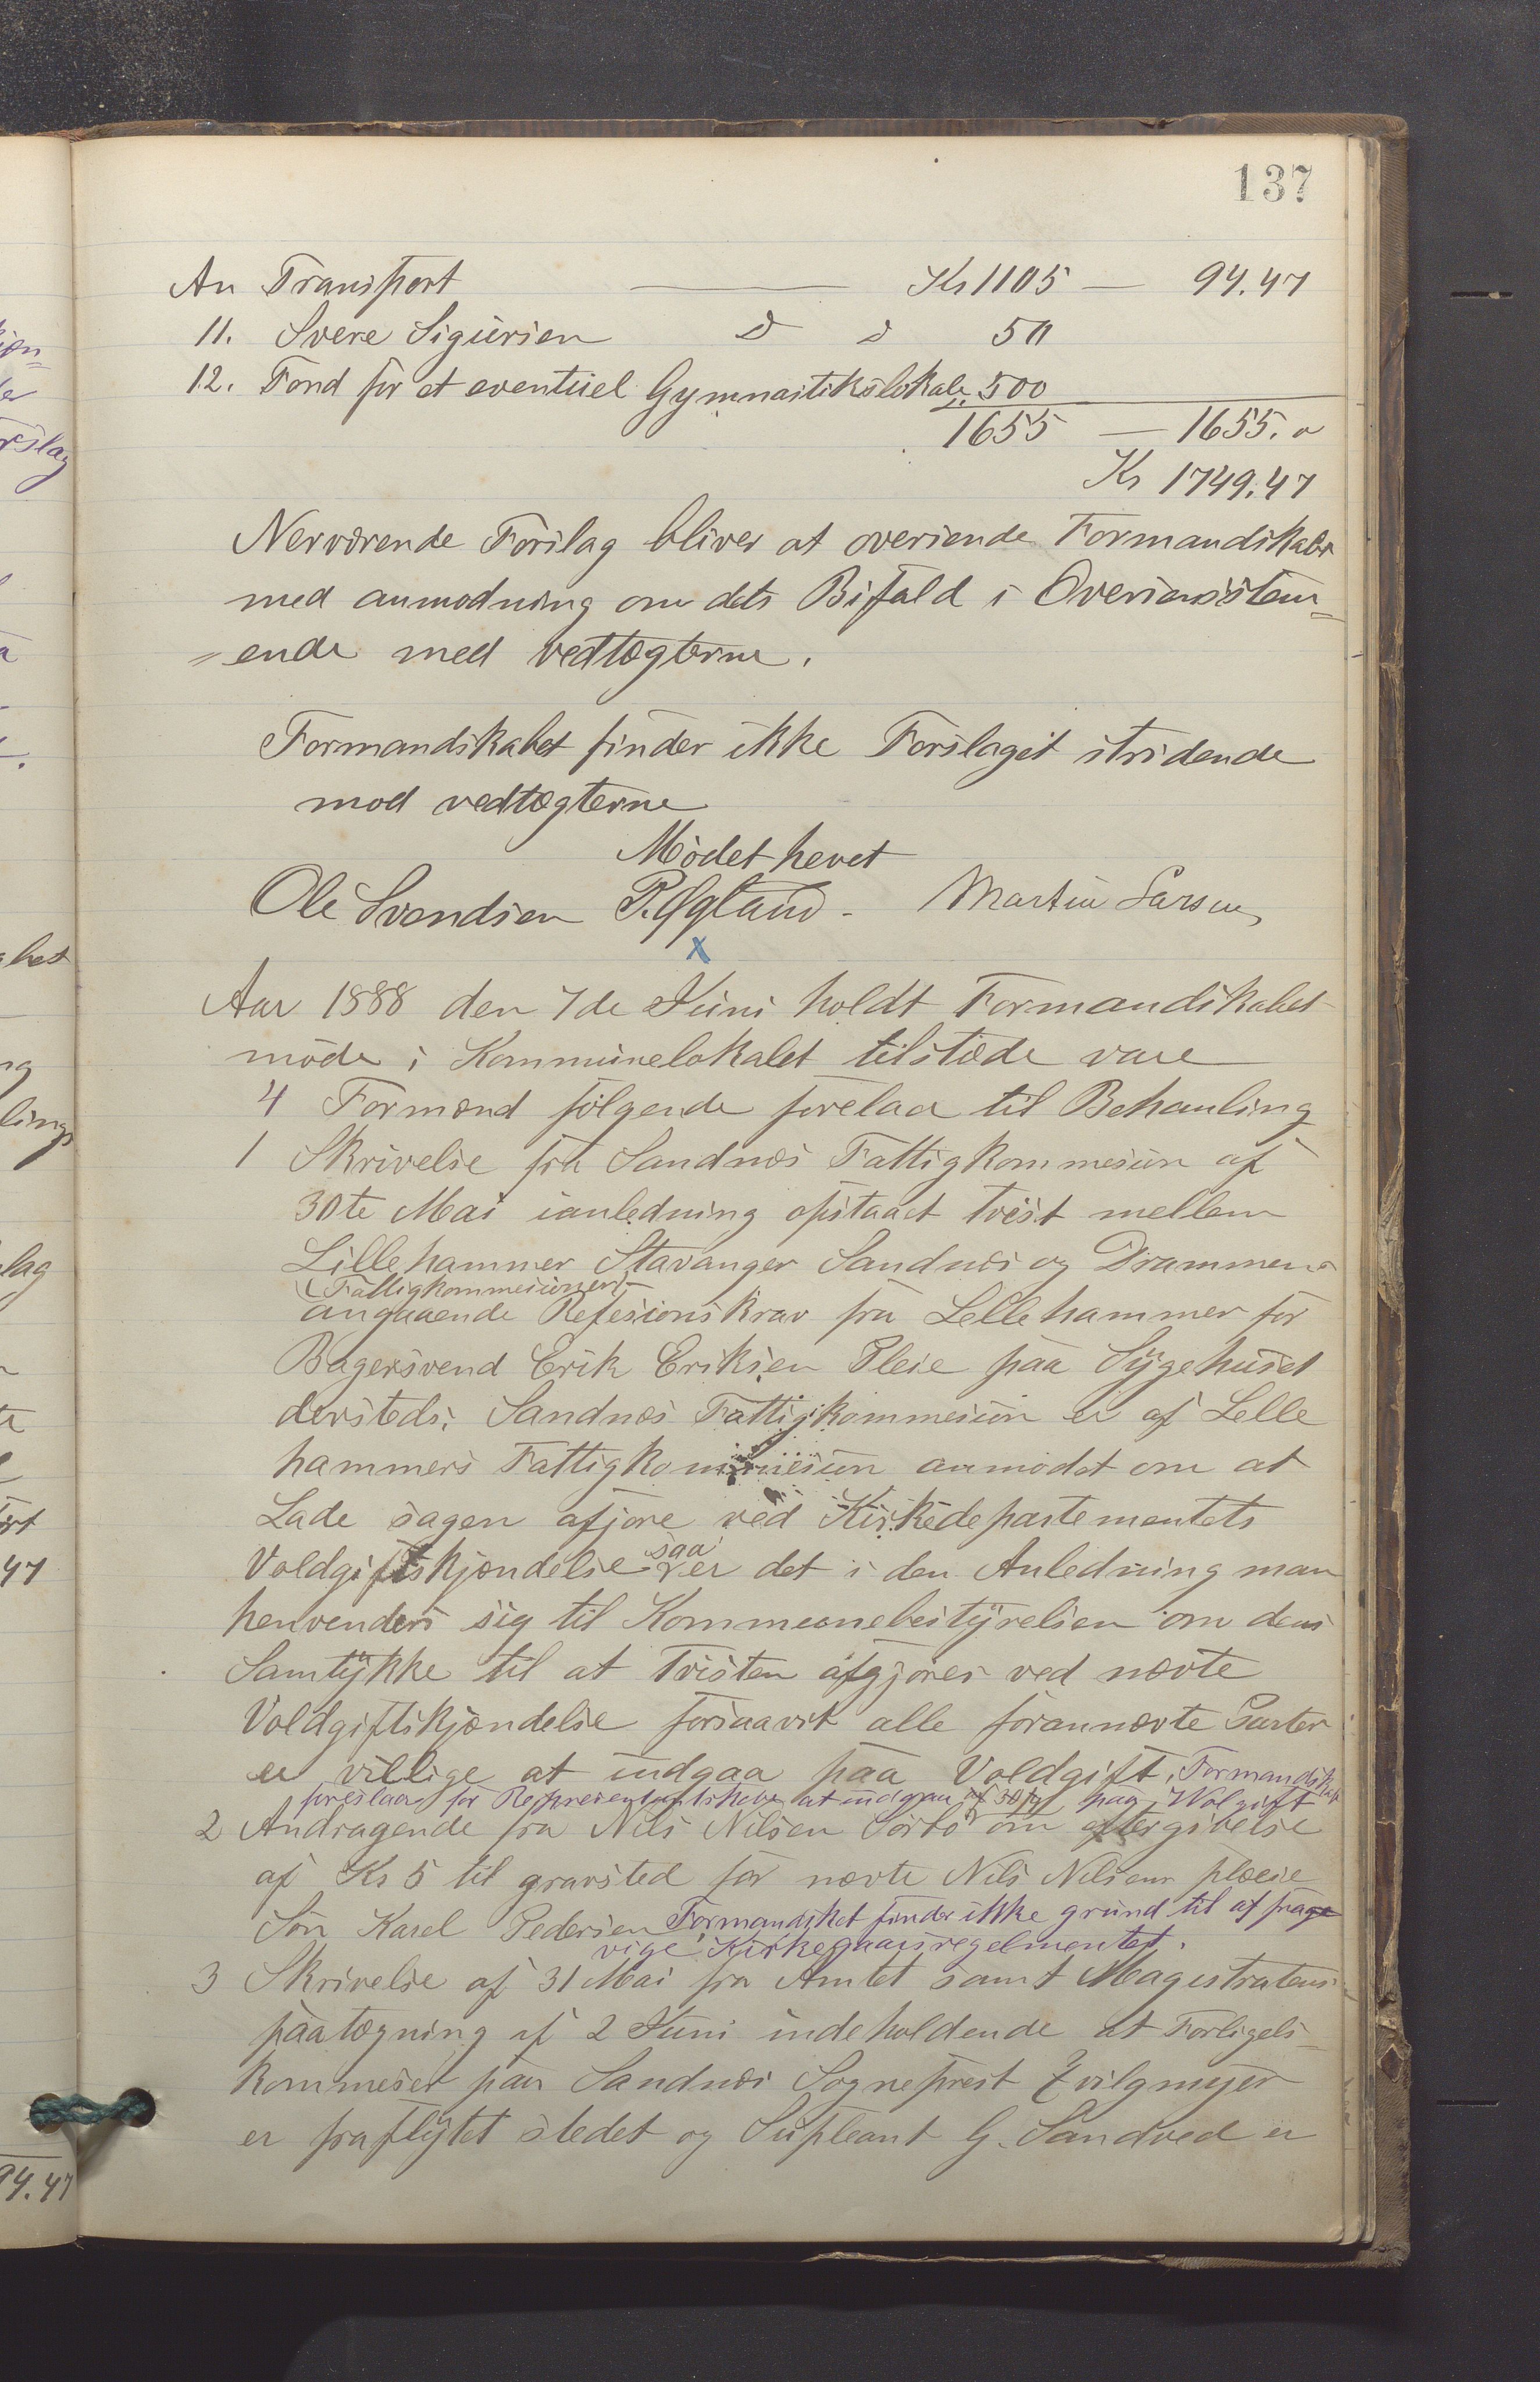 137
An Transport Kr 1105 — 94.47
11. Svere Sigursen d d 50
12. Fond for et eventuel Gymnastikslokale 500
1655 — 1655. 0
Kr 1749.47
Nerværende Forslag bliver at oversende Formandskabet
med anmodning om dets Bifald i Overiensstem=
=ende med vedtægterne.
Formandskabet finder ikke Forslaget stridende
mod vedtægterne
Mödet hevet
Ole Svendsen P. Øgland - Martin Larsen
x
Aar 1888 den 7de Juni holdt Formandskabet
möde i Kommunelokalet tilstæde vare
4 Formænd fölgende forelaa til Behanling
1 Skrivelse fra Sandnæs Fattigkommesiun af
30te Mai ianledning opstaaet tvist mellem
Lillehammer Stavanger Sandnæs og Drammens
(Fattigkommesiunen)
angaaende Refesionskrav fra Lellehammer for
Bagersvend Erik Eriksen Pleie paa Sygehuset
dersteds. Sandnæs Fattigkommesiun er af Lelle
hammers Fattigkommesiun anmodet om at
Lade sagen afjore ved Kirkedepartementets
Voldgiftskjændelse saa er det i den Anledning man
henvenders sig til Kommeunebestyrelsen om dens
Samtykke til at Tvisten afgjöres ved nævte
Voldgiftskjændelse forsaavit alle forannævte Parter
er villige at indgaa paa Voldgift. Formandskabet
foreslaar for Representantskabet at indgaa paa Wolgift
2 Andragende fra Nils Nilsen Sörbö om eftergivelse
af Kr 5 til gravsted for nævte Nils Nilsens plæie
Sön Karel Pedersen Formandsket finder ikke grund til at frage
vige Kirkegaarsregelmentet.
3 Skrivelse af 31 Mai fra Amtet samt Magistratens
paatægning af 2 Juni indeholdende at Forligels-
kommeser paa Sandnæs Sogneprest Zvilgmeyer
er fraflytet stedet og Supleant G. Sandved er